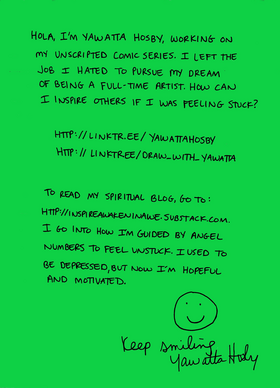 HOLA, I'M YAWATTA HOSBY, WORKING ON
MY UNSCRIPTED COMIC SERIES. I LEFT THE
JOB I HATED TO PURSUE MY DREAM
OF BEING A FULL-TIME ARTIST. HOW CAN
I INSPIRE OTHERS IF I WAS FEELING STUCK?
HTTP://LINKTR.EE/YAWATTAHOSBY
HTTP://LINKTR.EE/DRAW_WITH_YAWATTA
TO READ MY SPIRITUAL BLOG, GO TO:
HTTP://INSPIREAWAKENINAWE.SUBSTACK.COM.
I GO INTO HOW I'M GUIDED BY ANGEL
NUMBERS TO FEEL UNSTUCK. I USED TO
BE DEPRESSED, BUT NOW I'M HOPEFUL
AND MOTIVATED.
Keep smiling,
Yawatta Hosby